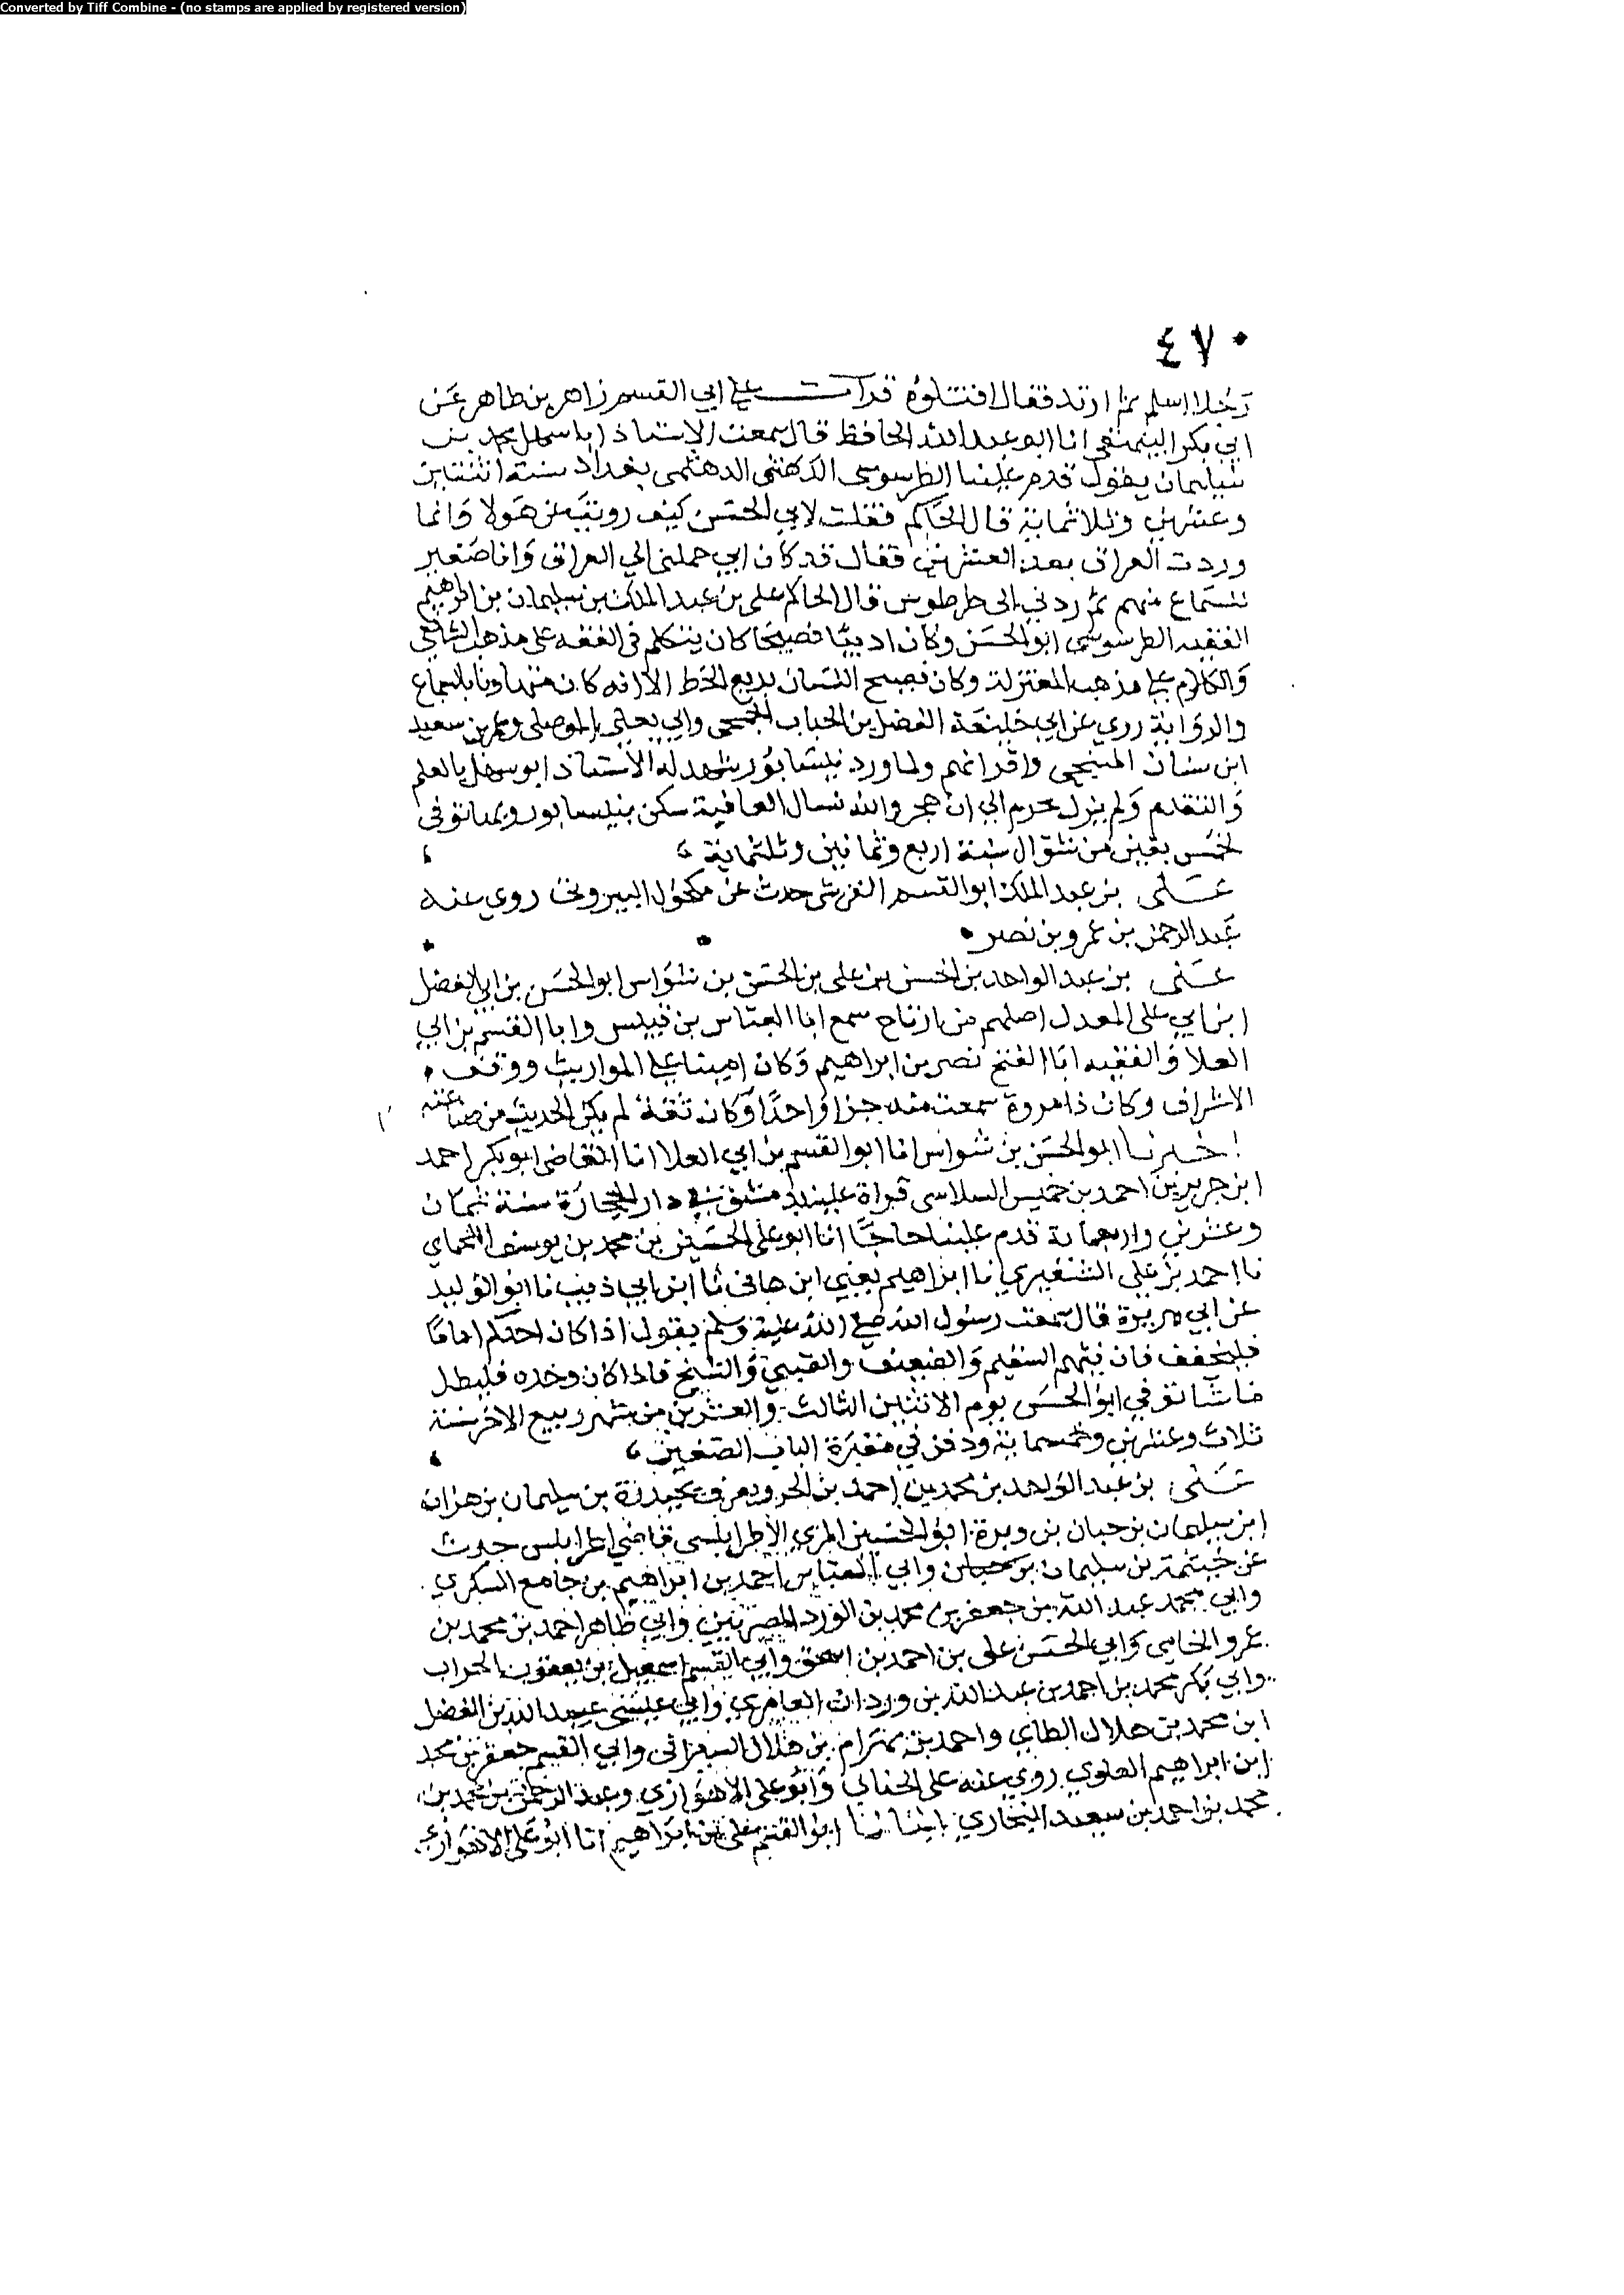 Converted by Tiff Combine - (no stamps are applied by registered version)
٤٧٠
رجلا اسلم ثم ارتد فقال اقتلوه قرات على ابي القسم زاهر بن طاهر عن
ابي بكر البيهقي انا ابو عبد الله الحافظ قال سمعت الاستاذ ابا سهل محمد بن
سليمان يقول قدم علينا الطرسوسي الدهثمي بغداد سنة اثنتين
وعشرين وثلاثماية قال الحاكم فقلت لابي الحسن كيف رويت عن هولا وانما
وردت العراق بعد العشرين فقال قد كان ابي حملني الي العراق وانا صغير
للسماع منهم ثم ردني الى طرطوس قال الحاكم علي بن عبد الملك بن سليمان بن ابراهيم
الفقيه الطرسوسي ابو الحسن وكان اديبا فصيحا كان يتكلم في الفقه على مذهب الشافعي
والكلام على مذهب المعتزلة وكان فصيح اللسان بديع الخط الا انه كان متهاونا بالسماع
والرواية روي عن ابي خليفة الفضل بن الحباب الجمحي وابي يعلى الموصلي وعمر بن سعيد
ابن سنان المنبجي واقرانهم ولما ورد نيسابور شهد له الاستاذ ابو سهل بالعلم
والتقدم ولم يزل محرم الي ان هجر والله نسال العافية سكن بنيسابور وبها توفي
لخمس بقين من شوال سنة اربع وثمانين وثلثماية
علي بن عبد الملك ابو القسم القرشي حدث عن مكحول البيروتي روي عنه
عبد الرحمن بن عمرو بن نصر
علي بن عبد الواحد بن الحسن بن علي بن الحسن بن شواس ابو الحسن بن ابي الفضل
ابن ابي علي المعدل اصلهم من ارتاح سمع ابا العباس بن قبيس وابا القسم بن ابي
العلا والفقيه ابا الفتح نصر بن ابراهيم وكان امينا على المواريث ووقف
الاشراف وكان ذا مروة سمعت منه جزا واحدا وكان ثقة لم يكن الحديث من صناعته
اخبرنا ابو الحسن بن شواس انا ابو القسم بن ابي العلا انا القاضي ابو بكر احمد
ابن جرير بن احمد بن خميس السلاسي قراة علينا بدمشق في دار الحجارة سنة ثمان
وعشرين واربعماية قدم علينا حاجا انا ابو علي الحسين بن محمد بن يوسف اللحماي
نا احمد بن علي الشغيري نا ابراهيم يعني ابن هاني نا ابن ابي ذيب نا ابو الوليد
عن ابي هريرة قال سمعت رسول الله صلى الله عليه وسلم يقول اذا كان احدكم اماما
فليخفف فان فيهم السقيم والضعيف والصبي والشيخ فاذا كان وحده فليطل
ما شا توفي ابو الحسن يوم الاثنين الثالث والعشرين من شهر ربيع الاخر سنة
ثلاث وعشرين وخمسماية ودفن في مقبرة الباب الصغير
علي بن عبد الواحد بن محمد بن احمد بن الحر ويعرف بحيدرة بن سليمان بن هزان
ابن سليمان بن حبان بن وبرة ابو الحسين المري الاطرابلسي قاضي اطرابلس حدث
عن خيثمة بن سليمان وابي العباس احمد بن ابراهيم بن جامع السكري
وابي محمد عبد الله بن جعفر بن محمد بن الورد المصريين وابي طاهر احمد بن محمد بن
عمرو الخامي وابي الحسن علي بن احمد بن اسحق وابي القسم اسمعيل بن يعقوب الجراب
وابي بكر محمد بن احمد بن عبد الله بن وردان العامري وابي عيسى عبيد الله بن الفضل
ابن محمد بن هلال الطاي واحمد بن بهرام بن هلال السيرافي وابي القسم جعفر بن محمد
ابن ابراهيم العلوي روي عنه علي الحناي وابو علي الاهوازي وعبد الرحمن بن محمد بن
محمد بن احمد بن سعيد البخاري انبانا ابو القسم علي بن ابراهيم انا ابو علي الاهوازي